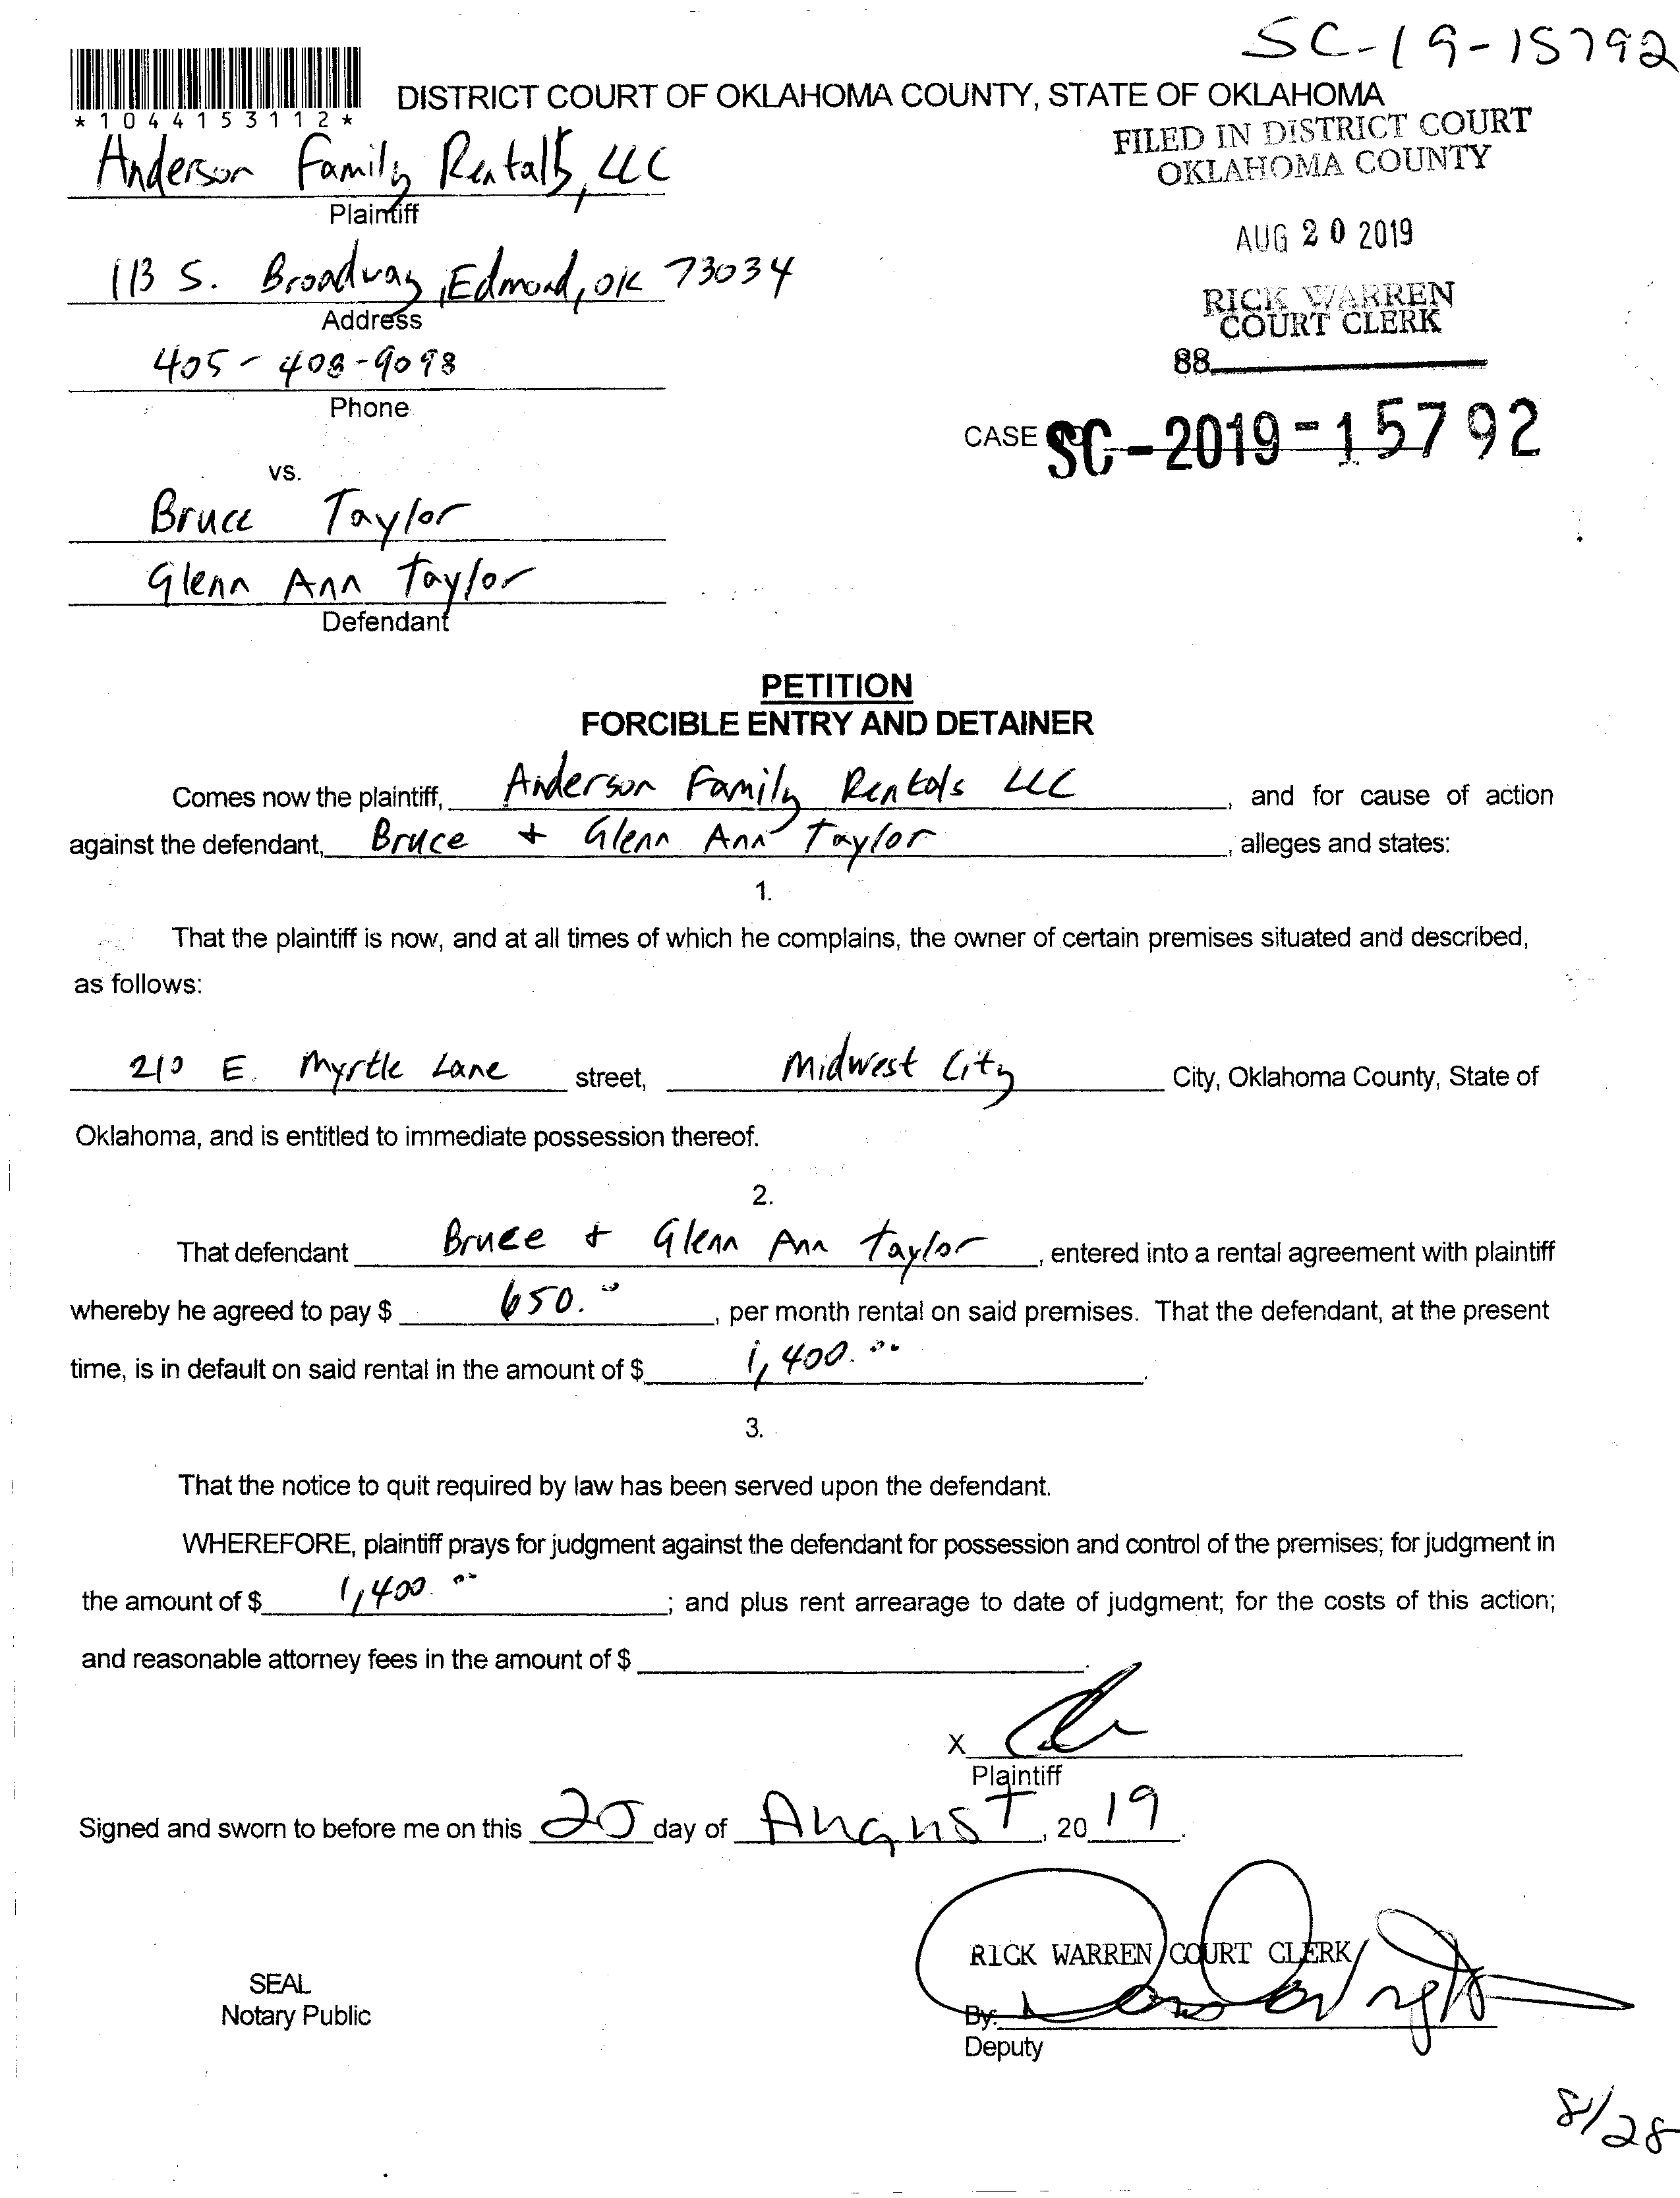 SC-19-15792
*1044153112*
DISTRICT COURT OF OKLAHOMA COUNTY, STATE OF OKLAHOMA
FILED IN DISTRICT COURT
OKLAHOMA COUNTY
Anderson Family Rentals, LLC
Plaintiff
AUG 20 2019
113 S. Broadway, Edmond, OK 73034
Address
RICK WARREN
COURT CLERK
405-408-9098
88
Phone
CASE SC-2019-15792
vs.
Bruce Taylor
Glenn Ann Taylor
Defendant
PETITION
FORCIBLE ENTRY AND DETAINER
Comes now the plaintiff, Anderson Family Rentals LLC, and for cause of action
against the defendant, Bruce + Glenn Ann Taylor, alleges and states:
1.
That the plaintiff is now, and at all times of which he complains, the owner of certain premises situated and described,
as follows:
210 E. Myrtle Lane street, Midwest City City, Oklahoma County, State of
Oklahoma, and is entitled to immediate possession thereof.
2.
That defendant Bruce + Glenn Ann Taylor, entered into a rental agreement with plaintiff
whereby he agreed to pay $ 650.00, per month rental on said premises. That the defendant, at the present
time, is in default on said rental in the amount of $ 1,400.00.
3.
That the notice to quit required by law has been served upon the defendant.
WHEREFORE, plaintiff prays for judgment against the defendant for possession and control of the premises; for judgment in
the amount of $ 1,400.00; and plus rent arrearage to date of judgment; for the costs of this action;
and reasonable attorney fees in the amount of $
X
Plaintiff
Signed and sworn to before me on this 20 day of August, 2019.
RICK WARREN COURT CLERK
SEAL
Notary Public
By:
Deputy
8/28